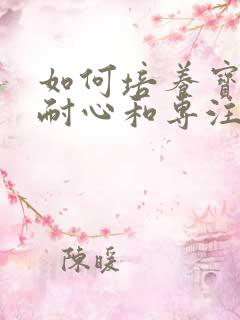 如何培養寶
耐心和專注
陳暖